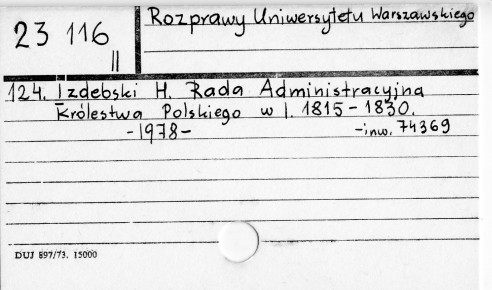 23 116
II
Rozprawy Uniwersytetu Warszawskiego
124. Izdebski H. Rada Administracyjna
Królestwa Polskiego w l. 1815-1830.
-1978-
-inw. 74369
DUJ 897/73. 15000